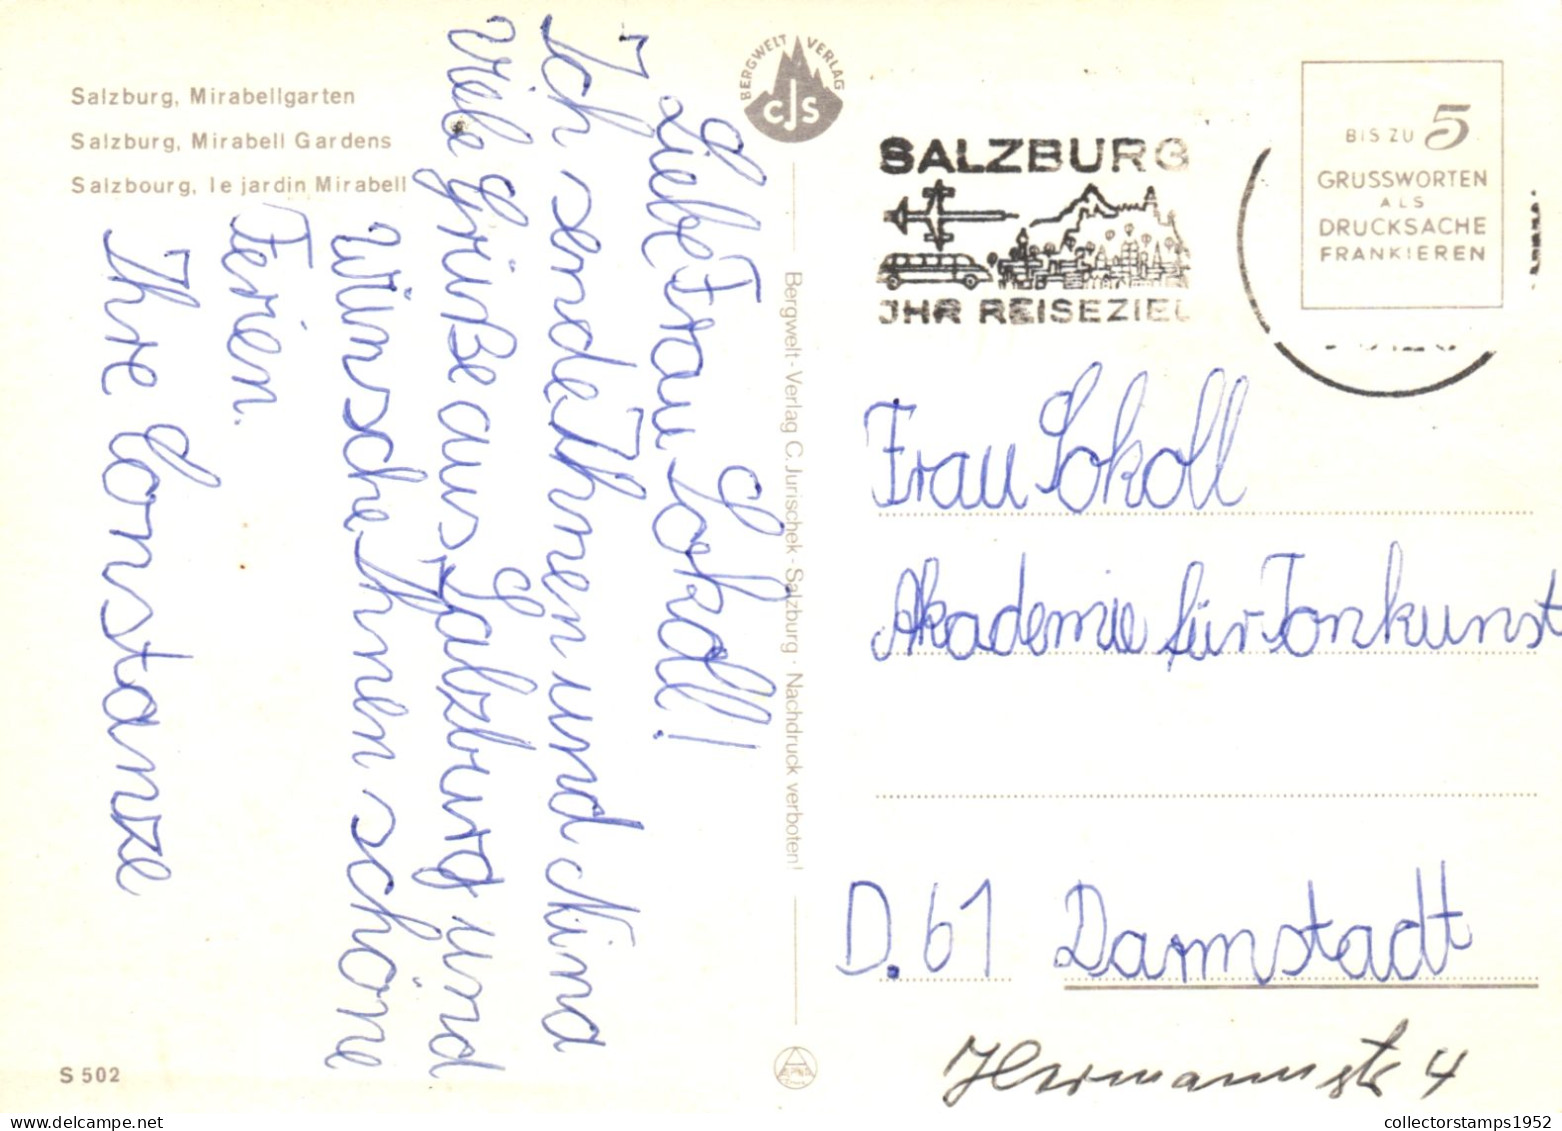 Salzburg, Mirabellgarten
Salzburg, Mirabell Gardens
Salzbourg, le jardin Mirabell
Liebe Frau Sokoll!
Ich sende Ihnen und Nina
viele Grüße aus Salzburg und
wünsche Ihnen schöne
Ferien.
Ihre Constanze
S 502
BERGWELT VERLAG
CJS
Bergwelt-Verlag C. Jurischek-Salzburg · Nachdruck verboten!
SALZBURG
JHR REISEZIEL
BIS ZU 5
GRUSSWORTEN
ALS
DRUCKSACHE
FRANKIEREN
Frau Sokoll
Akademie für Tonkunst
D. 61 Darmstadt
Hermannstr 4
collectorstamps1952